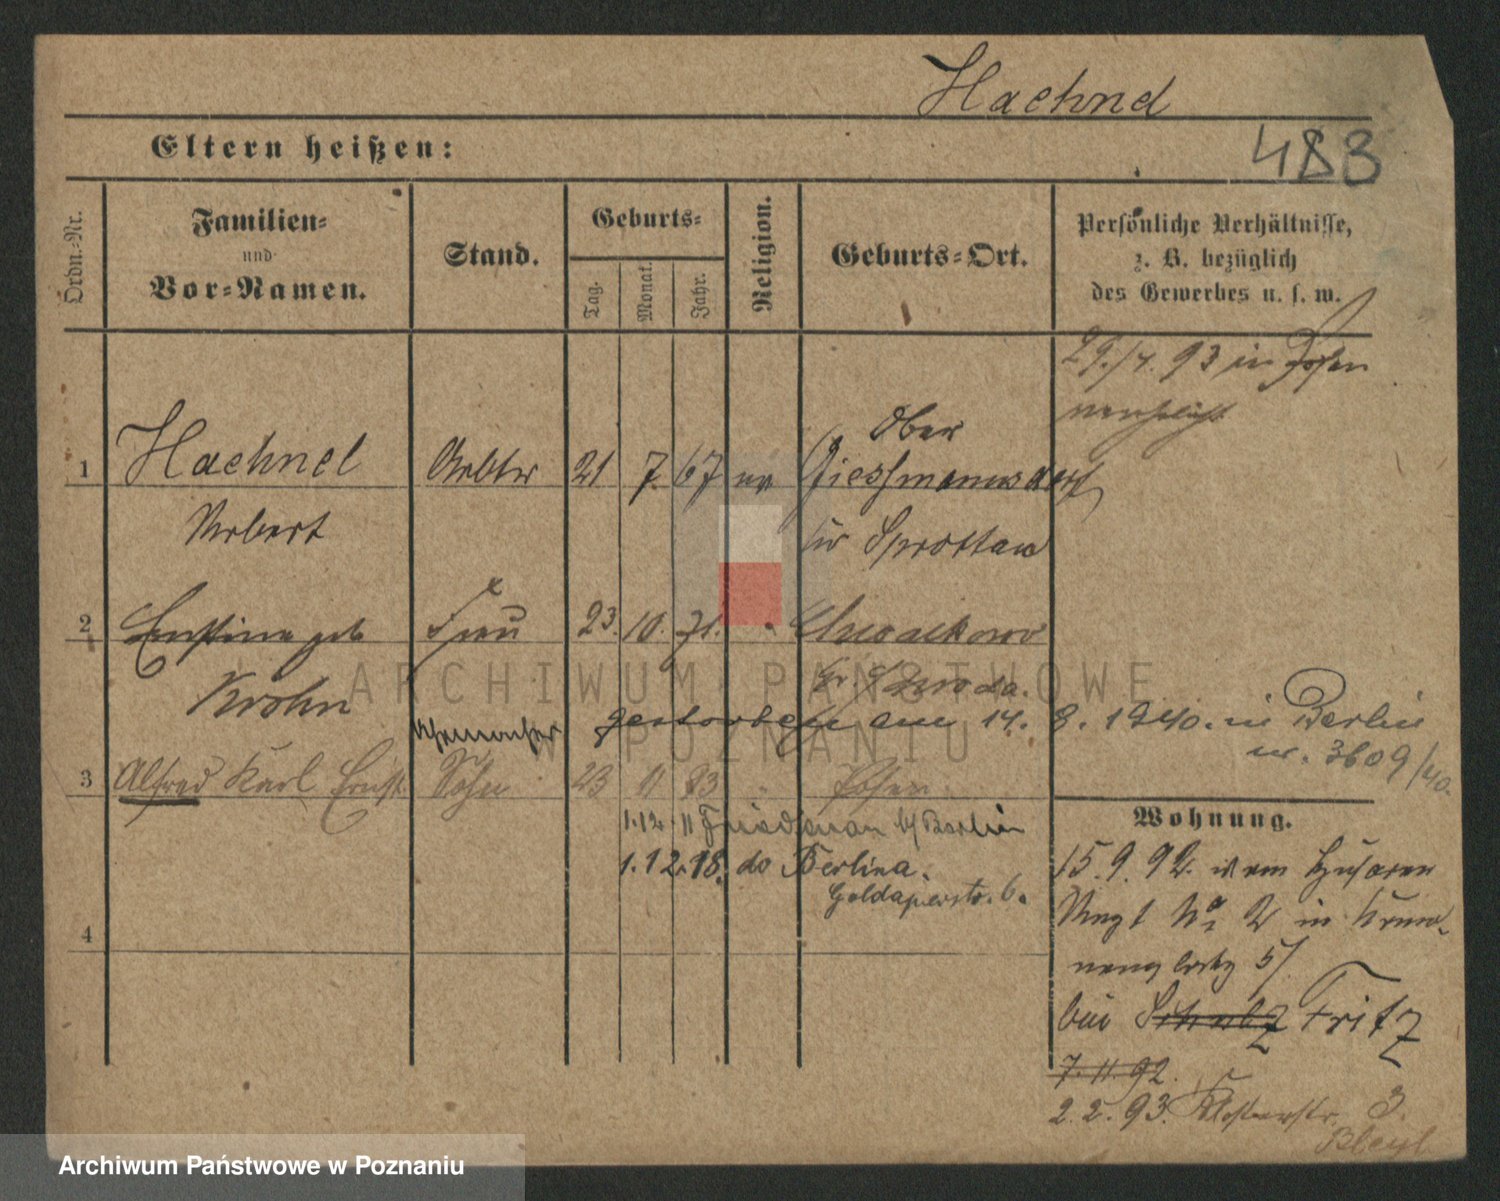 Haehnel
Eltern heißen:
483
Ordn.-Nr.
Familien-
und
Vor-Namen.
Stand.
Geburts-
Tag.
Monat.
Jahr.
Religion.
Geburts-Ort.
Persönliche Verhältnisse,
z. B. bezüglich
des Gewerbes u. s. w.
29./4. 93 in Posen
verehelicht
Ober
1 Haehnel Arbtr 21 7. 67 ev Giessmannsdorf
Robert Sprottau
2 Ernstine geb Frau 23. 10. 71.
Krohn Kr Schroda.
Uhrmacher gestorben am 14. 8. 1940. in Berlin
nr. 3609/40.
3 Alfred Karl Ernst Sohn 23 11 93 Posen
1.12 11 Friedenau b/ Berlin
1.12.18. do Berlina.
Goldaperstr. 6.
4
Wohnung.
15.9.92. vom Husaren
Regt No 2 in
5/
bei Schulz Fritz
7.11.92.
2.2.93. Klosterstr. 3.
ARCHIWUM PAŃSTWOWE
W POZNANIU
Archiwum Państwowe w Poznaniu